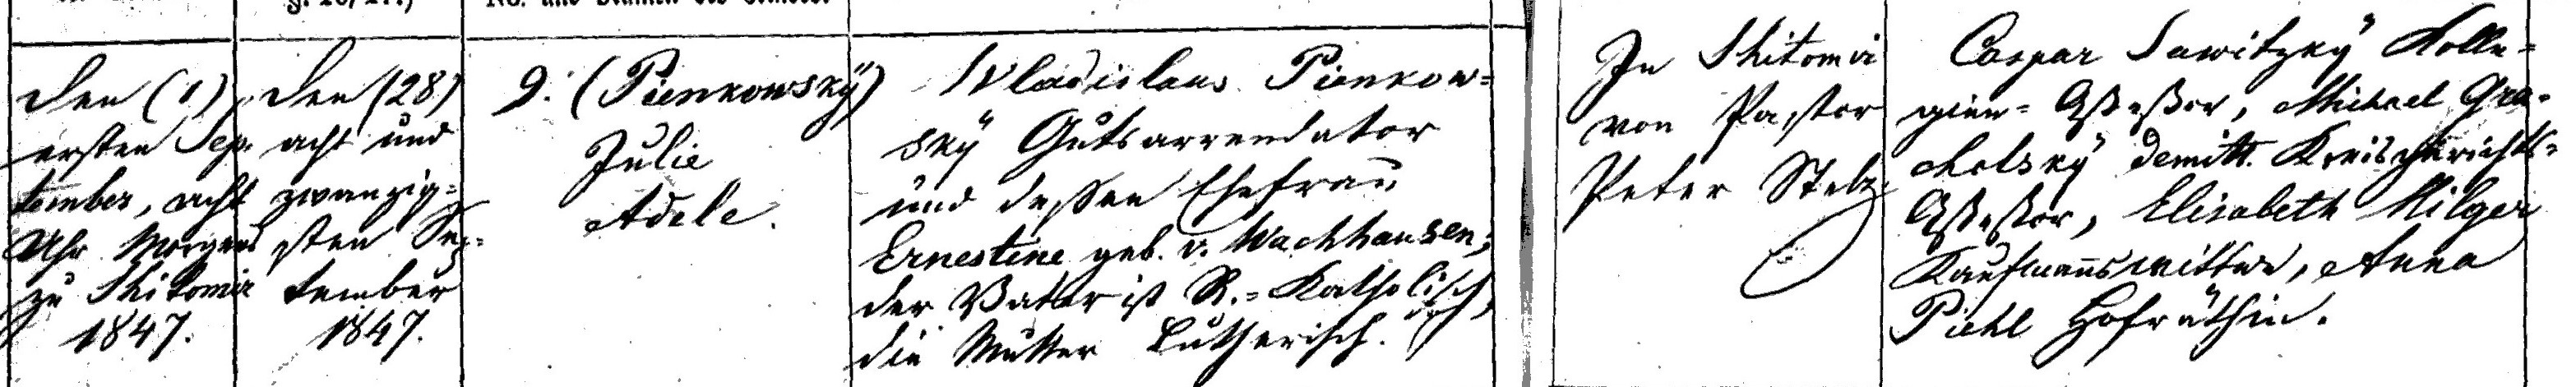 No. und Namen des Kindes.
Den (1)
ersten Sep-
tember, acht
Uhr Morgens
zu Shitomir
1847.
den (28)
acht und
zwanzig-
sten Sep-
tember
1847.
9. (Pienkowskÿ)
Julie
Adele.
Wladislaus Pienkow-
skÿ Gutsarrendator
und dessen Ehefrau
Ernestine geb. v. Wachhausen;
der Vater ist R.-Katholisch,
die Mutter Lutherisch.
In Shitomir
von Pastor
Peter Stelz.
Caspar Sawitzkÿ Kolle-
gien-Assessor, Michael Gra-
cholskÿ demitt. Kreisgerichts-
Assessor, Elisabeth Hilger
Kaufmannswittwe, Anna
Piehl Hofräthin.